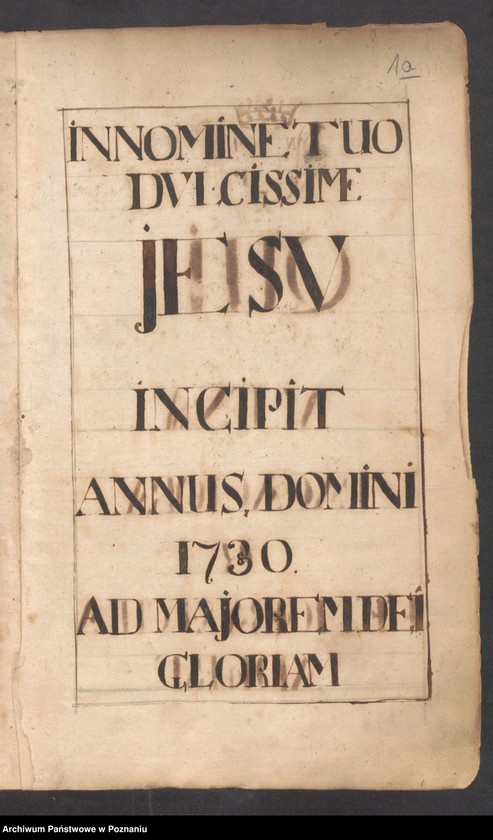 1a
INNOMINE TUO
DVLCISSIME
jESV
INCIPIT
ANNUS, DOMINI
1730.
AD MAJOREM DEI
GLORIAM
Archiwum Państwowe w Poznaniu